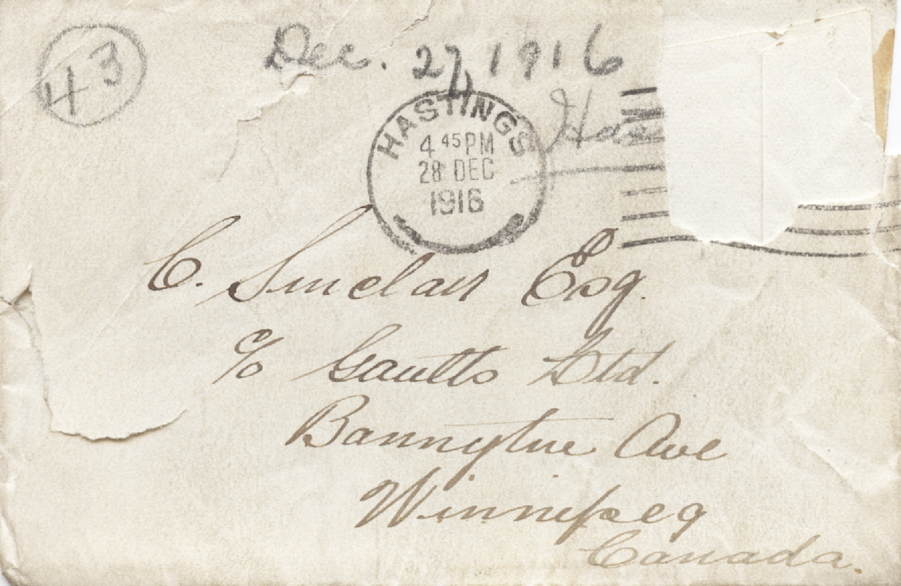 43
Dec. 27, 1916
HASTINGS
4 45 PM
28 DEC
1916
C. Sinclair Esq.
c/o Gaults Ltd.
Bannytne Ave
Winnipeg
Canada.